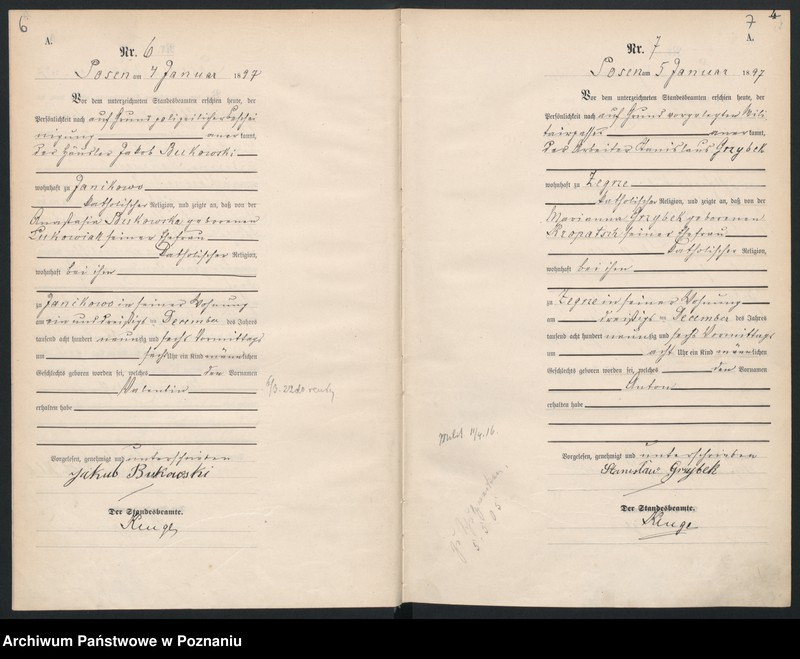 6
A.
Nr. 6
Posen am 4 Januar 1897
Vor dem unterzeichneten Standesbeamten erschien heute, der
Persönlichkeit nach auf Grund polizeilicher Beschei
nigung anerkannt,
der Häusler Jakob Bukowski
wohnhaft zu Janikowo
katholischer Religion, und zeigte an, daß von der
Anastasia Bukowska geborenen
Lukowiak seiner Ehefrau
katholischer Religion,
wohnhaft bei ihm
zu Janikowo in seiner Wohnung
am ein und dreißigsten December des Jahres
tausend acht hundert neunzig und sechs Vormittags
um sechs Uhr ein Kind männlichen
Geschlechts geboren worden sei, welches den Vornamen
Valentin
erhalten habe
Vorgelesen, genehmigt und unterschrieben
Jakub Bukowski
Der Standesbeamte.
Kruge
7
4
A.
Nr. 7
Posen am 5 Januar 1897
Vor dem unterzeichneten Standesbeamten erschien heute, der
Persönlichkeit nach auf Grund vorgelegten Mili
tairpasses anerkannt,
der Arbeiter Stanislaus Grzybek
wohnhaft zu Zegrze
katholischer Religion, und zeigte an, daß von der
Marianna Grzybek geborenen
Kropatsch seiner Ehefrau
katholischer Religion,
wohnhaft bei ihm
zu Zegrze in seiner Wohnung
am dreißigsten December des Jahres
tausend acht hundert neunzig und sechs Vormittags
um acht Uhr ein Kind männlichen
Geschlechts geboren worden sei, welches den Vornamen
Anton
erhalten habe
Milit 11/4.16.
5.3.05
Vorgelesen, genehmigt und unterschrieben
Stanisław Grzybek
Der Standesbeamte.
Kruge
Archiwum Państwowe w Poznaniu